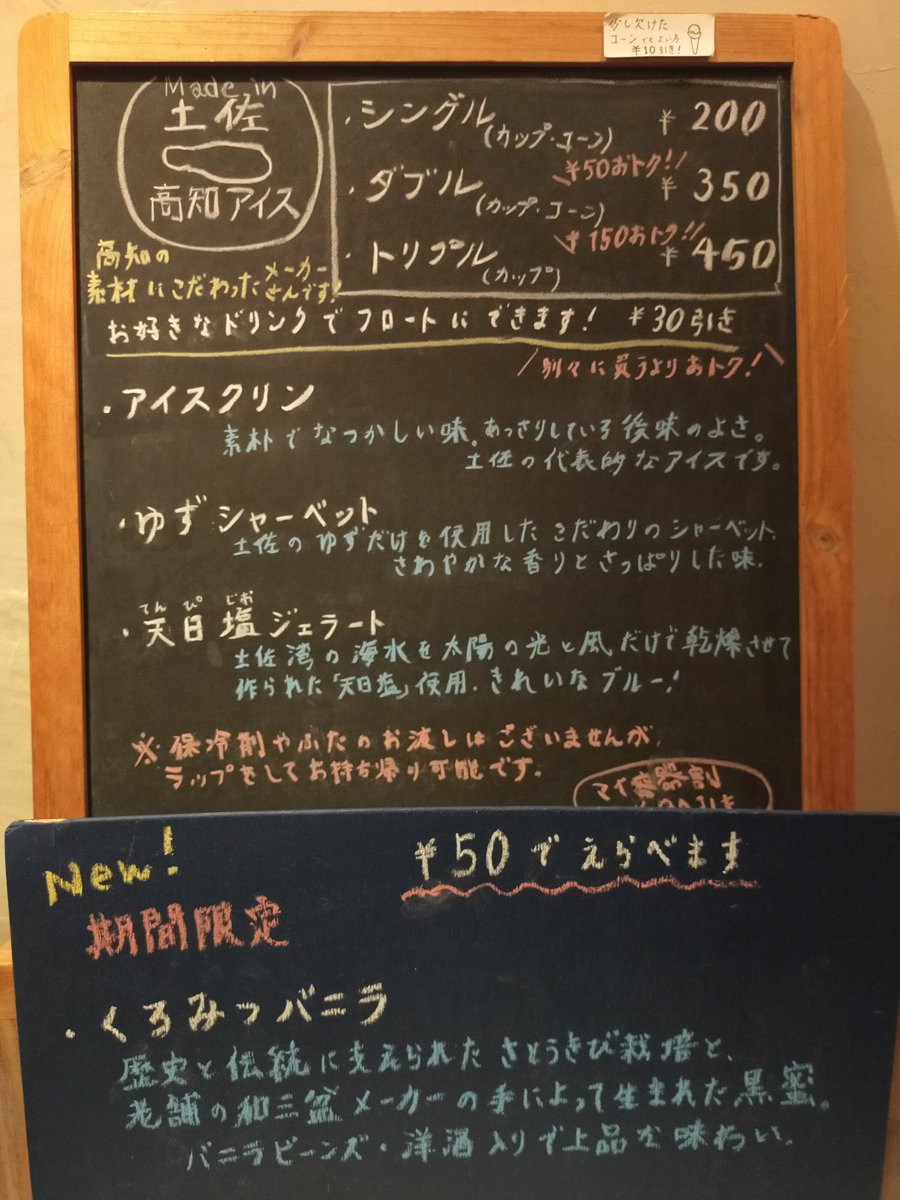 少し欠けた
コーンでもよい方
¥10引き!
Made in
土佐
高知アイス
高知の
素材にこだわったメーカー
さんです!
・シングル(カップ・コーン) ¥200
\¥50おトク!!/
・ダブル(カップ・コーン) ¥350
\¥150おトク!!/
・トリプル(カップ) ¥450
お好きなドリンクでフロートにできます! ¥30引き
\別々に買うよりおトク!/
・アイスクリン
素朴でなつかしい味。あっさりしている後味のよさ。
土佐の代表的なアイスです。
・ゆずシャーベット
土佐のゆずだけを使用したこだわりのシャーベット。
さわやかな香りとさっぱりした味.
てんぴじお
・天日塩ジェラート
土佐湾の海水を太陽の光と風だけで乾燥させて
作られた「天日塩」使用.きれいなブルー!
※保冷剤やふたのお渡しはございませんが
ラップをしてお持ち帰り可能です.
マイ容器割
New!
¥50でえらべます
期間限定
・くろみつバニラ
歴史と伝統に支えられたさとうきび栽培と、
老舗の和三盆メーカーの手によって生まれた黒蜜。
バニラビーンズ・洋酒入りで上品な味わい.